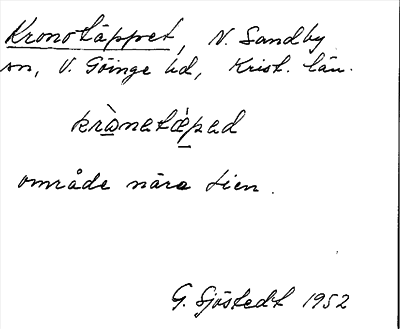 Kronotäppet, N. Sandby
sn, V. Göinge hd, Krist. län.
krònetæ̀ped
område nära Lien.
G. Sjöstedt 1952